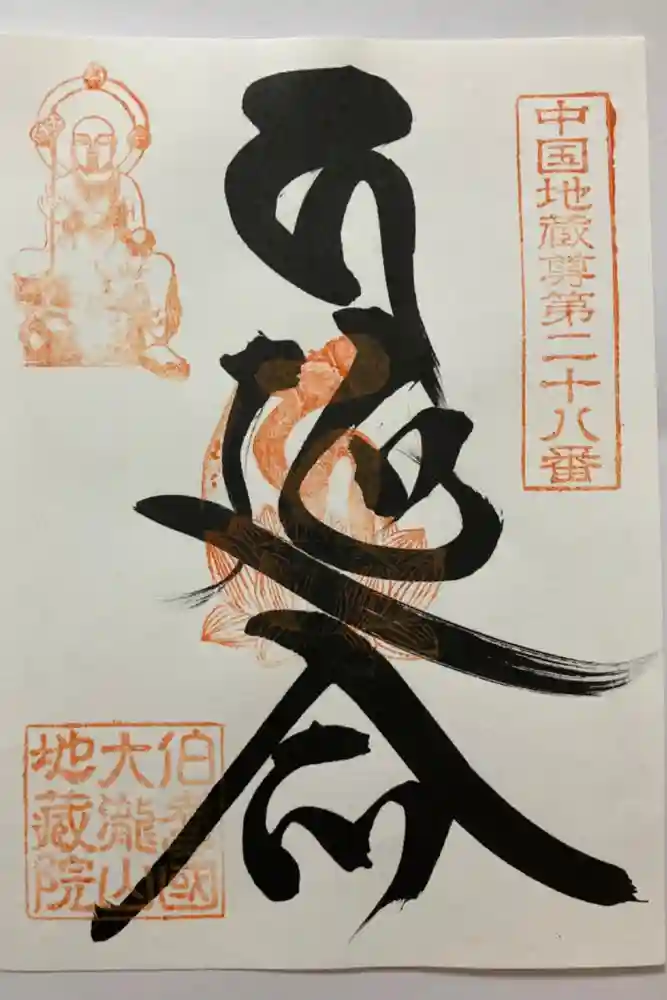 中国地蔵尊第二十八番
延命
伯耆國
大瀧山
地蔵院